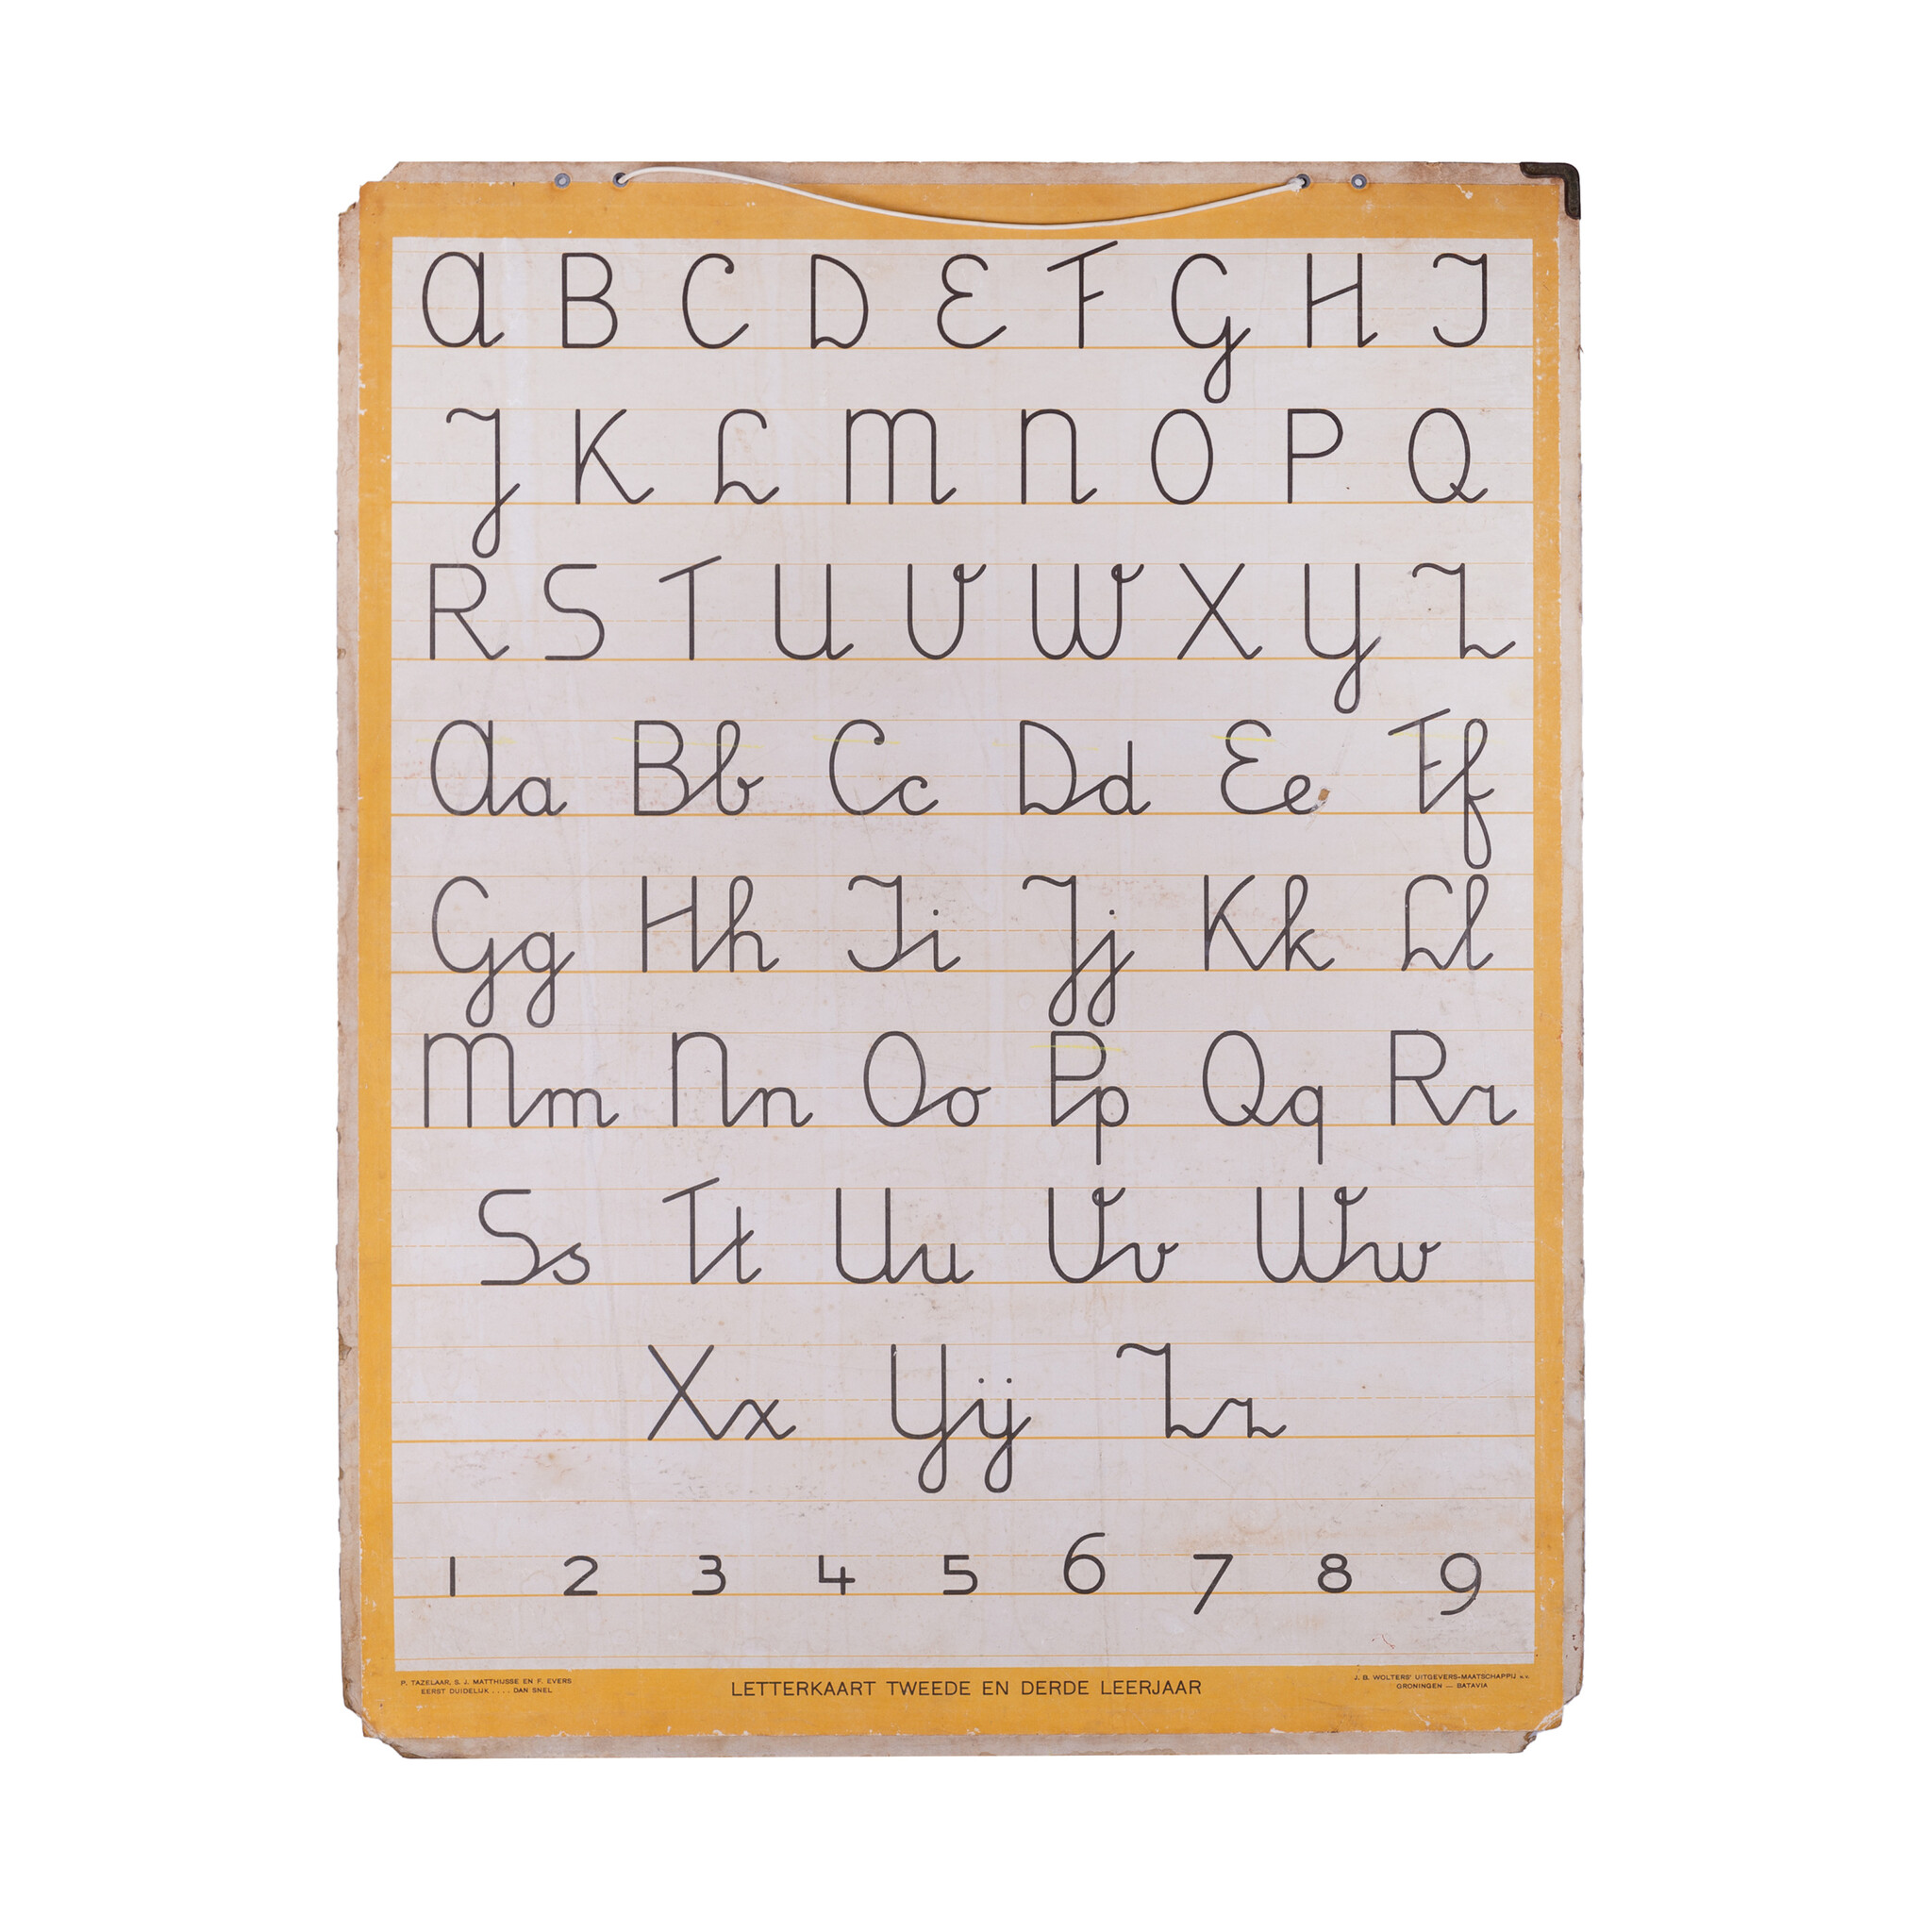 A B C D E F G H I
J K L M N O P Q
R S T U V W X Y Z
Aa Bb Cc Dd Ee Ff
Gg Hh Ii Jj Kk Ll
Mm Nn Oo Pp Qq Rr
Ss Tt Uu Vv Ww
Xx Yij Zz
1 2 3 4 5 6 7 8 9
P. TAZELAAR, S. J. MATTHIJSSE EN F. EVERS
EERST DUIDELIJK .... DAN SNEL
LETTERKAART TWEEDE EN DERDE LEERJAAR
J. B. WOLTERS' UITGEVERS-MAATSCHAPPIJ N.V.
GRONINGEN — BATAVIA